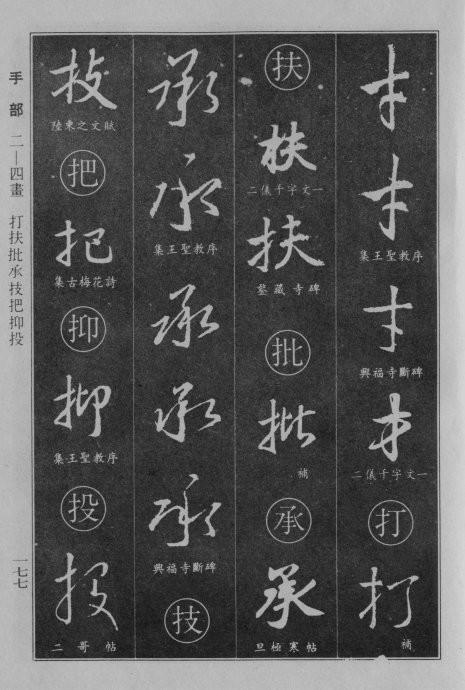 手
手
集王聖教序
手
興福寺斷碑
手
二儀千字文一
打
打
補
扶
扶
二儀千字文一
扶
鍪藏寺碑
批
批
補
承
承
旦極寒帖
承
承
集王聖教序
承
承
承
興福寺斷碑
技
技
陸柬之文賦
把
把
集古梅花詩
抑
抑
集王聖教序
投
投
二哥帖
手部 二—四畫 打扶批承技把抑投
一七七